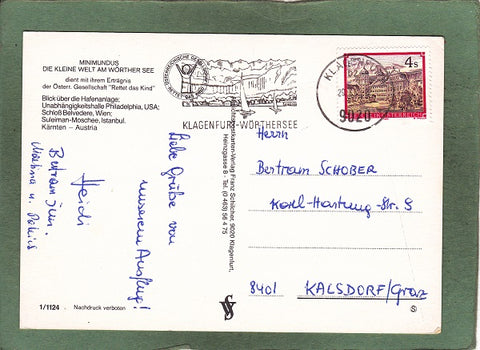 MINIMUNDUS
DIE KLEINE WELT AM WÖRTHER SEE
dient mit ihrem Erträgnis
der Österr. Gesellschaft "Rettet das Kind"
Blick über die Hafenanlage:
Unabhängigkeitshalle Philadelphia, USA;
Schloß Belvedere, Wien;
Suleiman-Moschee, Istanbul.
Kärnten – Austria
Liebe Grüße von
unserem Ausflug!
Heidi
Bertram jun.
Martina u.
1/1124
Nachdruck verboten
Ansichtskarten-Verlag Franz Schilcher, 9020 Klagenfurt,
Heinzgasse 8 - Tel. (0 463) 56 4 75
KLAGENFURT-WÖRTHERSEE
4 S
9020
Herrn
Bertram SCHOBER
Karl-Hartung-Str. 9
8401 KALSDORF/Graz